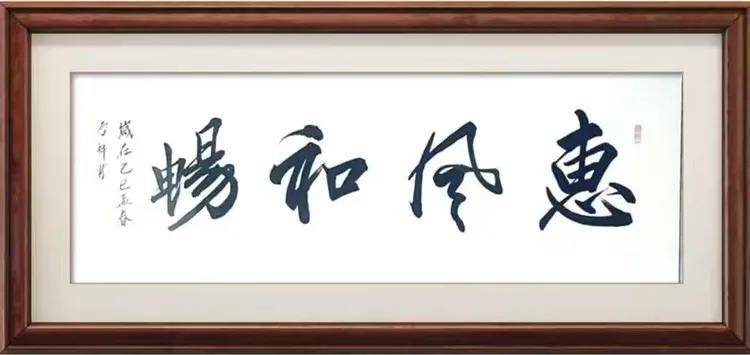 惠风和暢
歲在乙巳孟春